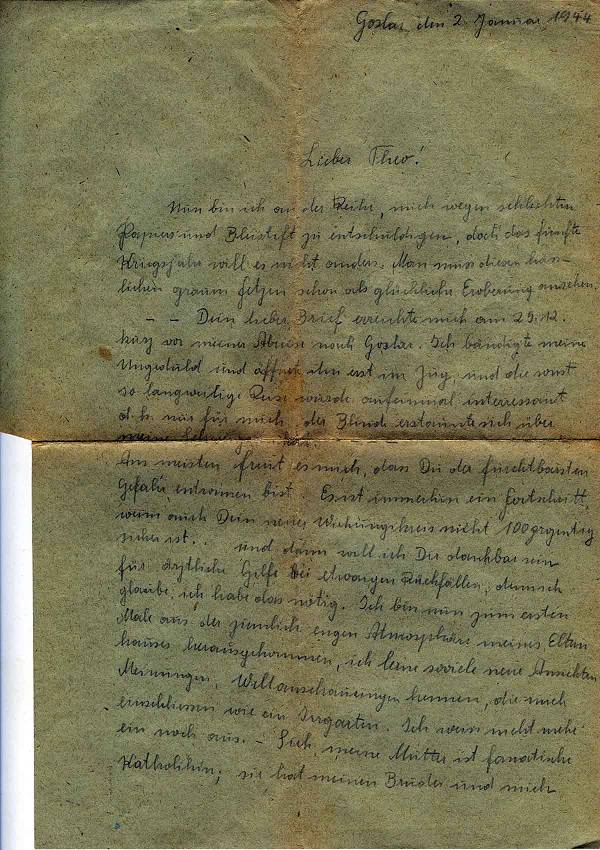 Goslar, den 2. Januar 1944
Lieber Theo!
Nun bin ich an der Reihe, mich wegen schlechten
Papiers und Bleistift zu entschuldigen, doch das fünfte
Kriegsjahr will es nicht anders. Man muss diesen häss-
lichen grauen Fetzen schon als glückliche Eroberung ansehen.
- - Dein lieber Brief erreichte mich am 29.12.
kurz vor meiner Abreise nach Goslar. Ich bändigte meine
Ungeduld und öffnete ihn erst im Zug, und die sonst
so langweilige Reise wurde auf einmal interressant
d. h. nur für mich, der Blinde erstaunte sich über
meine
Am meisten freut es mich, dass Du der furchtbarsten
Gefahr entronnen bist. Es ist immerhin ein Fortschritt,
wenn auch Dein neuer Wirkungskreis nicht 100prozentig
sicher ist.. und dann will ich Dir dankbar sein
für ärztliche Hilfe bei etwaigen Rückfällen, dennoch
glaube, ich habe das nötig. Ich bin nun zum ersten
Male aus der ziemlich engen Atmosphäre meines Eltern
hauses herausgekommen, ich lerne soviele neue Ansichten
Meinungen, Weltanschauungen kennen, die mich
einschliessen wie ein Irrgarten. Ich weiss nicht mehr
ein noch aus. - Sieh, meine Mutter ist fanatische
Katholikin; sie hat meinen Bruder und mich